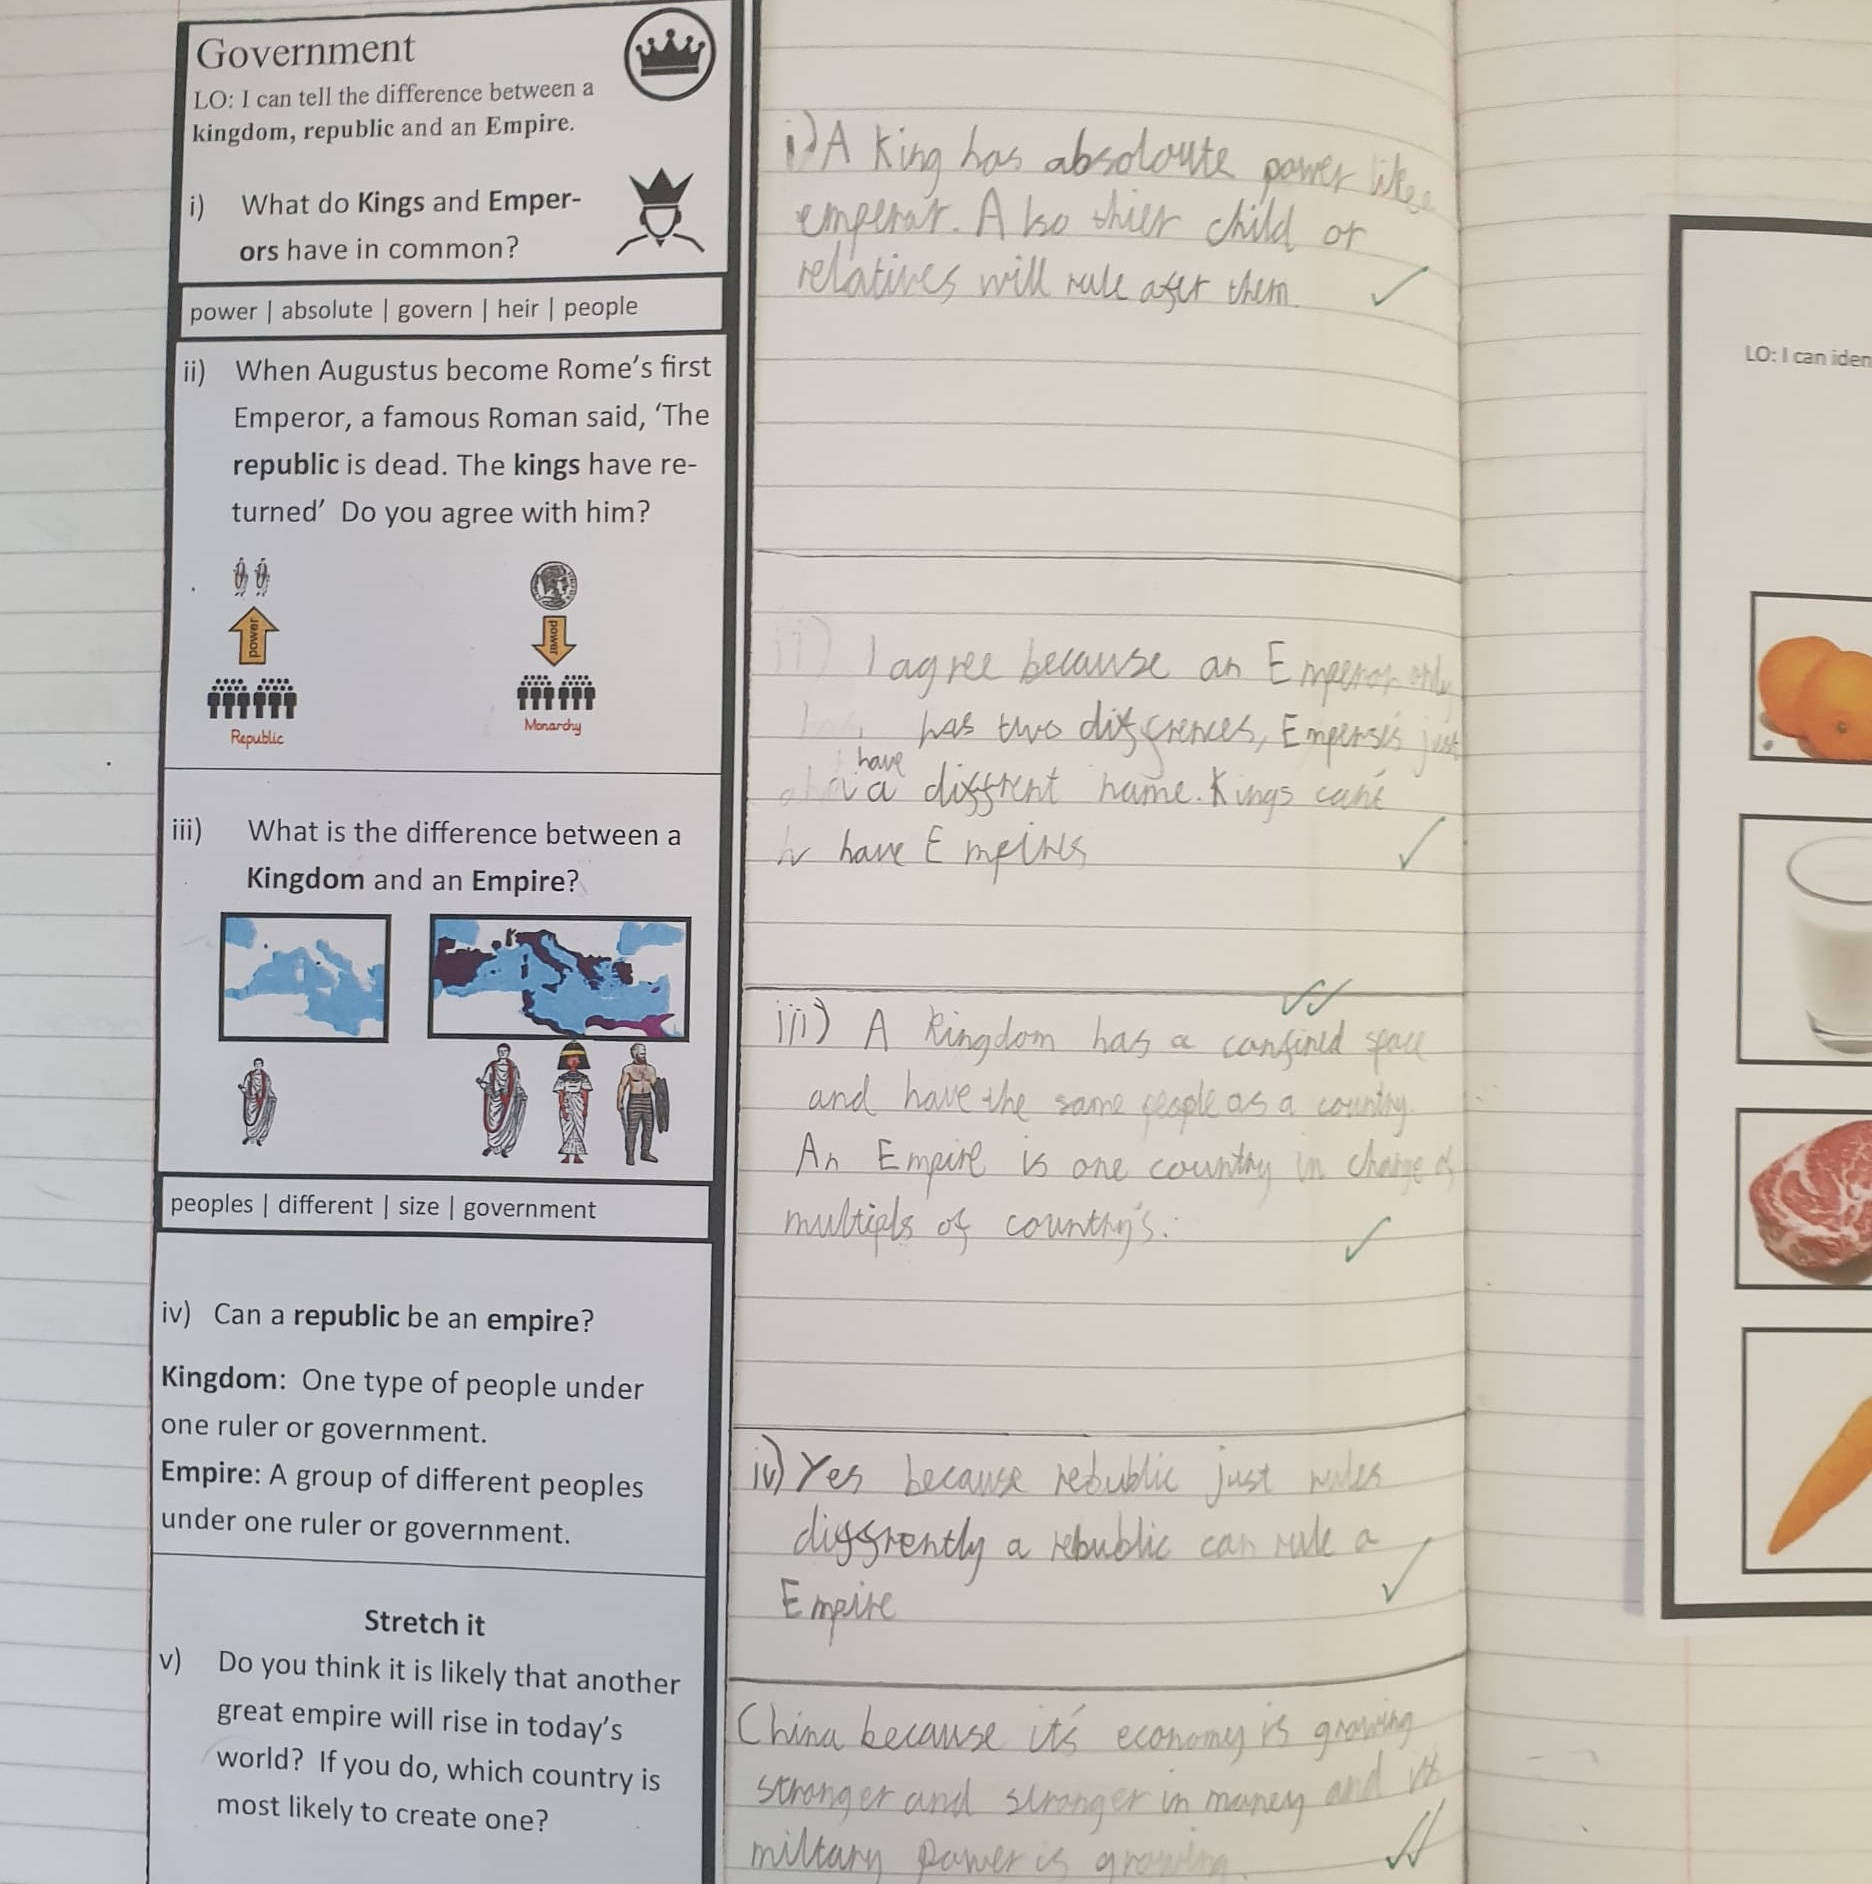 Government
LO: I can tell the difference between a
kingdom, republic and an Empire.
i) What do Kings and Emper-
ors have in common?
power | absolute | govern | heir | people
ii) When Augustus become Rome's first
Emperor, a famous Roman said, 'The
republic is dead. The kings have re-
turned' Do you agree with him?
power
power
Republic
Monarchy
iii) What is the difference between a
Kingdom and an Empire?
peoples | different | size | government
iv) Can a republic be an empire?
Kingdom: One type of people under
one ruler or government.
Empire: A group of different peoples
under one ruler or government.
Stretch it
v) Do you think it is likely that another
great empire will rise in today's
world? If you do, which country is
most likely to create one?
i) A King has absoloute power like
emperar. Also thier child or
relatives will rule after them.
ii) I agree because an Emperor only
has two differences, Emperers just
have
a different name. Kings can't
have Empires
iii) A kingdom has a confined space
and have the same people as a country.
An Empire is one country in charge of
multipls of country's.
iv) Yes because rebublic just rules
diffrently a rebublic can rule a
Empire
China because it's economy is growing
stronger and stronger in money and its
miltary power is growing.
LO: I can iden